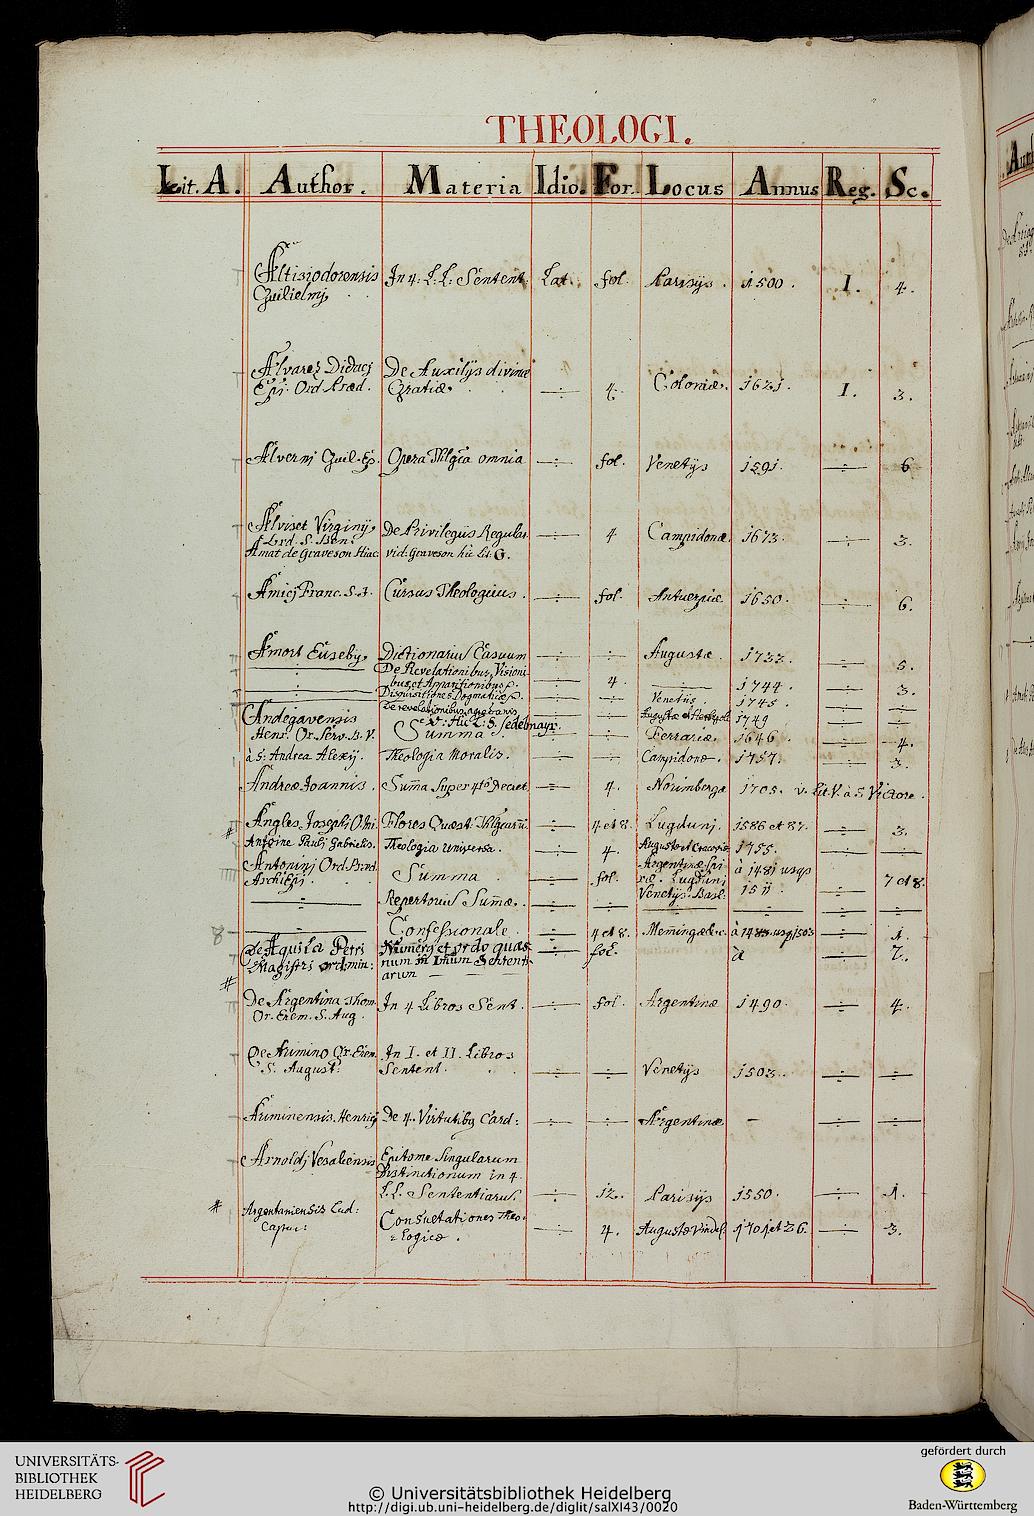 THEOLOGI.
Lit. A. Author. Materia Idio. For. Locus Annus Reg. Sc.
Altisiodorensis In 4: L: L: Sentent: Lat. fol. Parisijs. 1500. I. 4.
Guilielmg
Alvarez Didacj De Auxilijs divinæ
Epi: Ord. Præd. Gratiæ. 4. Coloniæ. 1621. I. 3.
Alvernj Guil. Ep. Opera Thlgca omnia fol. Venetijs 1591. 6
Alviset Virginij De Privilegiis Regular. 4 Campidonæ. 1673. 3.
Ord. S. Ben:
Amat de Graveson Hiac. vid. Graveson hic Lit. G.
Amicj Franc. S. J. Cursus Theologicus. fol. Antuerpiæ. 1650. 6.
Amort Euseby. Dictionariu Casuum Augustæ 1733. 5.
De Revelationibus, Visioni
bus et Apparitionibus 4. 1744. 3.
Disquisitiones Dogmaticæ Venetiis. 1745.
De revelationibus
Augustæ et Herbipoli 1749
v: Hic L: S. Sedelmayr.
Andegavensis Summa. Ferrariæ. 1646. 4.
Henr. Or. Serv. B. V.
à S: Andrea Alexij. Theologia Moralis. Campidonæ. 1757. 3.
Andreæ Joannis. Suma super 4to Decret. 4. Noimbergæ 1705. v. Lit. V. à S. Victore.
# Angles Josephi O. Mi. Flores Quæst: Thlgcaru. 4 et 8. Lugdunj. 1586 et 87. 3.
Antoine Paulj Gabrielis. Theologia universa. 4. Augustæ et Cracoviæ 1755.
Antoninj Ord. Præd. Summa fol. Argentinæ Spi à 1481 usqs 7 et 8.
Archiepj. ræ. Lugdunj
Venetijs. Basl: 1511.
Repertoriu Sumæ.
8 Confessionale 4 et 8. Memingæ &c. à 1483 usq 1503 1.
De Aquila Petri Numerg et ordo quæs fol. à 7.
Magistri ord: min: num in Imum Sententi
ariun
# De Argentina Thom. In 4 Libros Sent. fol. Argentinæ 1490. 4.
Or. Erem. S. Aug.
De Arimino Gr. Erem. In I. et II. Libros
S. August: Sentent. Venetijs 1503.
Ariminensis Henricj De 4. Virtutibg Card: Argentinæ –
Arnoldj Vesaliensis Epitome Singularum
Distinctionum in 4.
L. L. Sententiarus. 12. Parisijs 1550. 1.
# Argentaniensis Lud: Consultationes Theo-
Capuc: logicæ. 4. Augustæ Vindel. 1701 et 26. 3.
UNIVERSITÄTS-
BIBLIOTHEK
HEIDELBERG
© Universitätsbibliothek Heidelberg
http://digi.ub.uni-heidelberg.de/diglit/salXI43/0020
gefördert durch
Baden-Württemberg